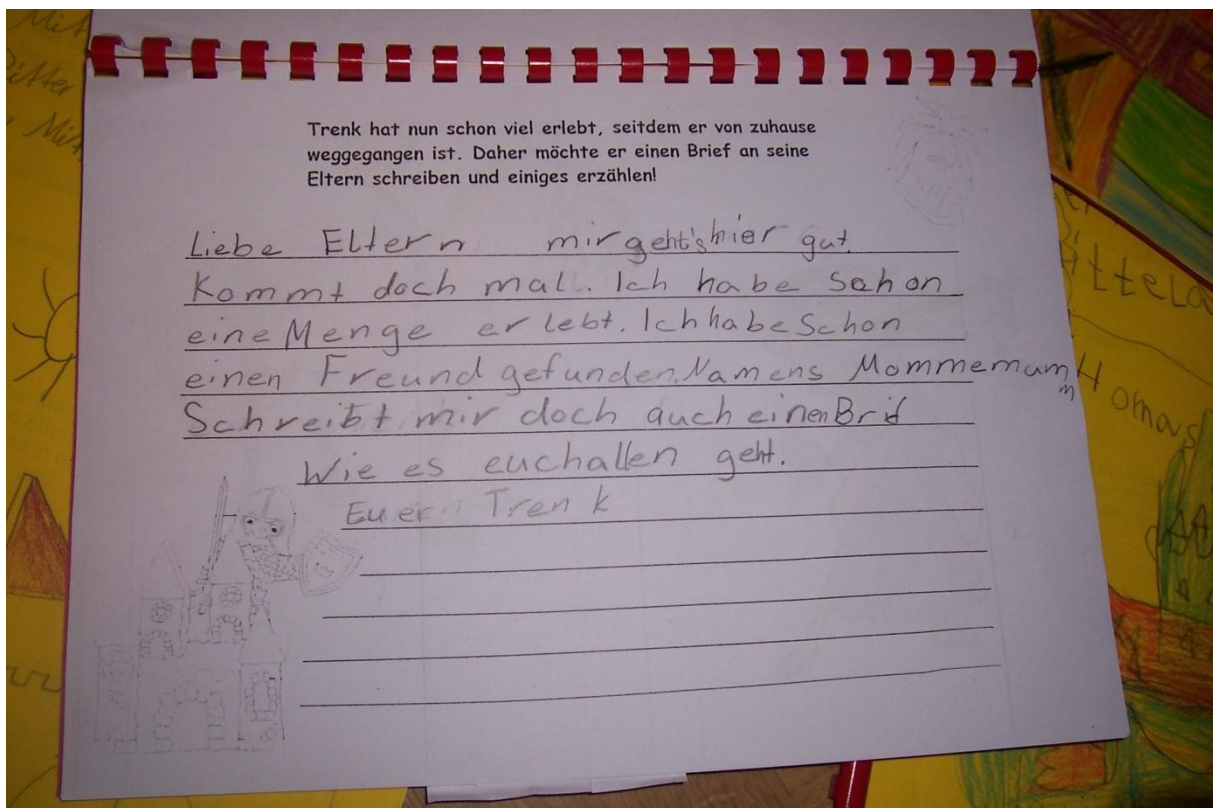 Trenk hat nun schon viel erlebt, seitdem er von zuhause
weggegangen ist. Daher möchte er einen Brief an seine
Eltern schreiben und einiges erzählen!
Liebe Eltern mir geht's hier gut.
Kommt doch mall. Ich habe Schon
eine Menge erlebt. Ich habe Schon
einen Freund gefunden. Namens Mommemumm
Schreibt mir doch auch einen Brif
Wie es euch allen geht.
Euern Trenk
Ritter